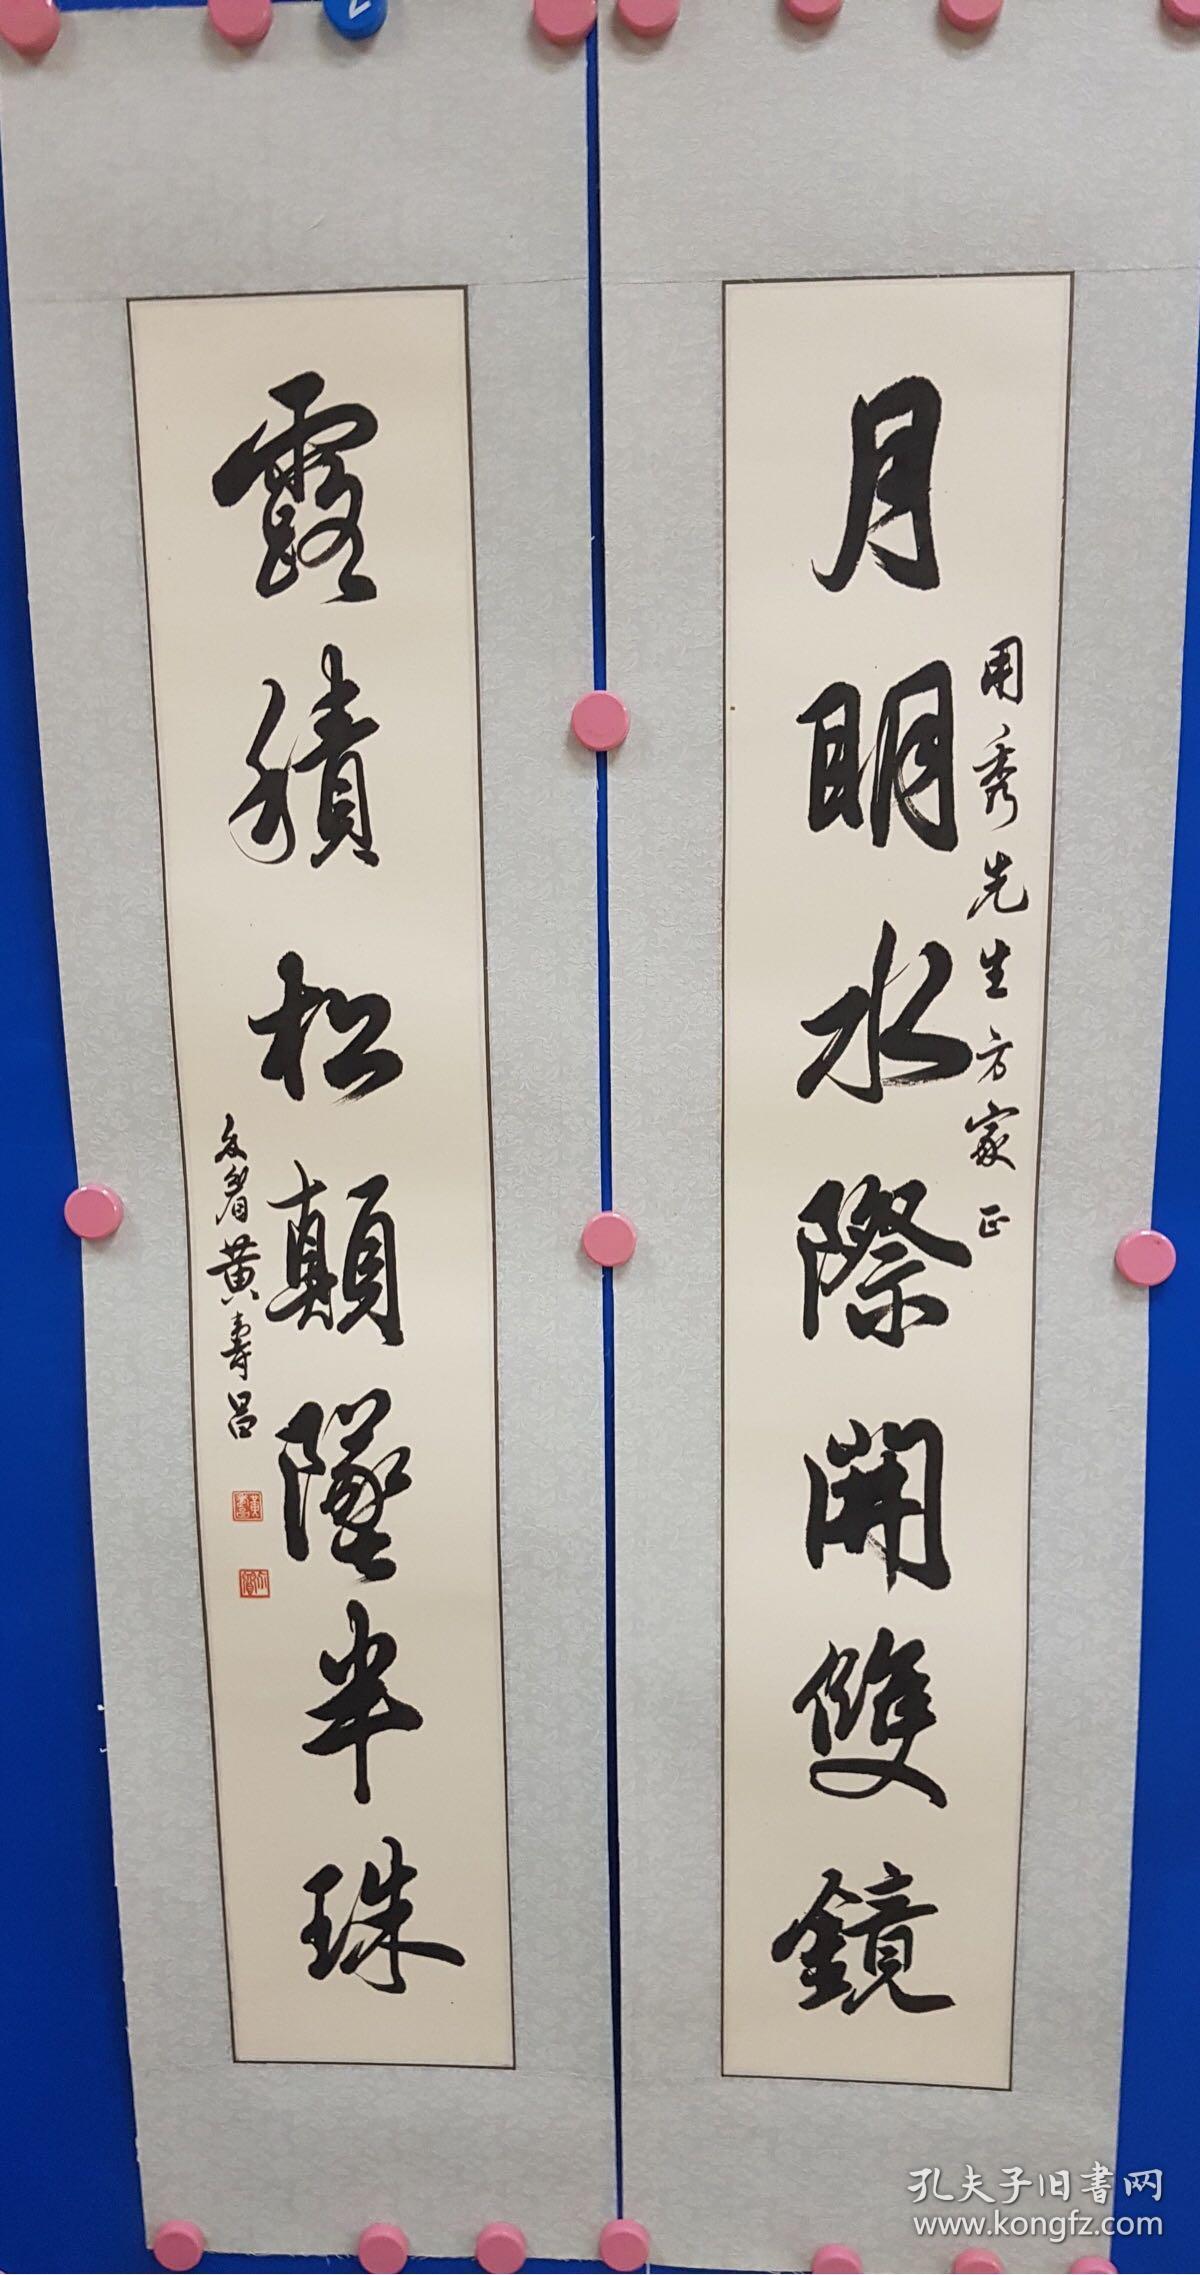 月明水際開雙鏡
用秀先生方家正
露積松顛墜半珠
黃壽昌
孔夫子旧书网
www.kongfz.com